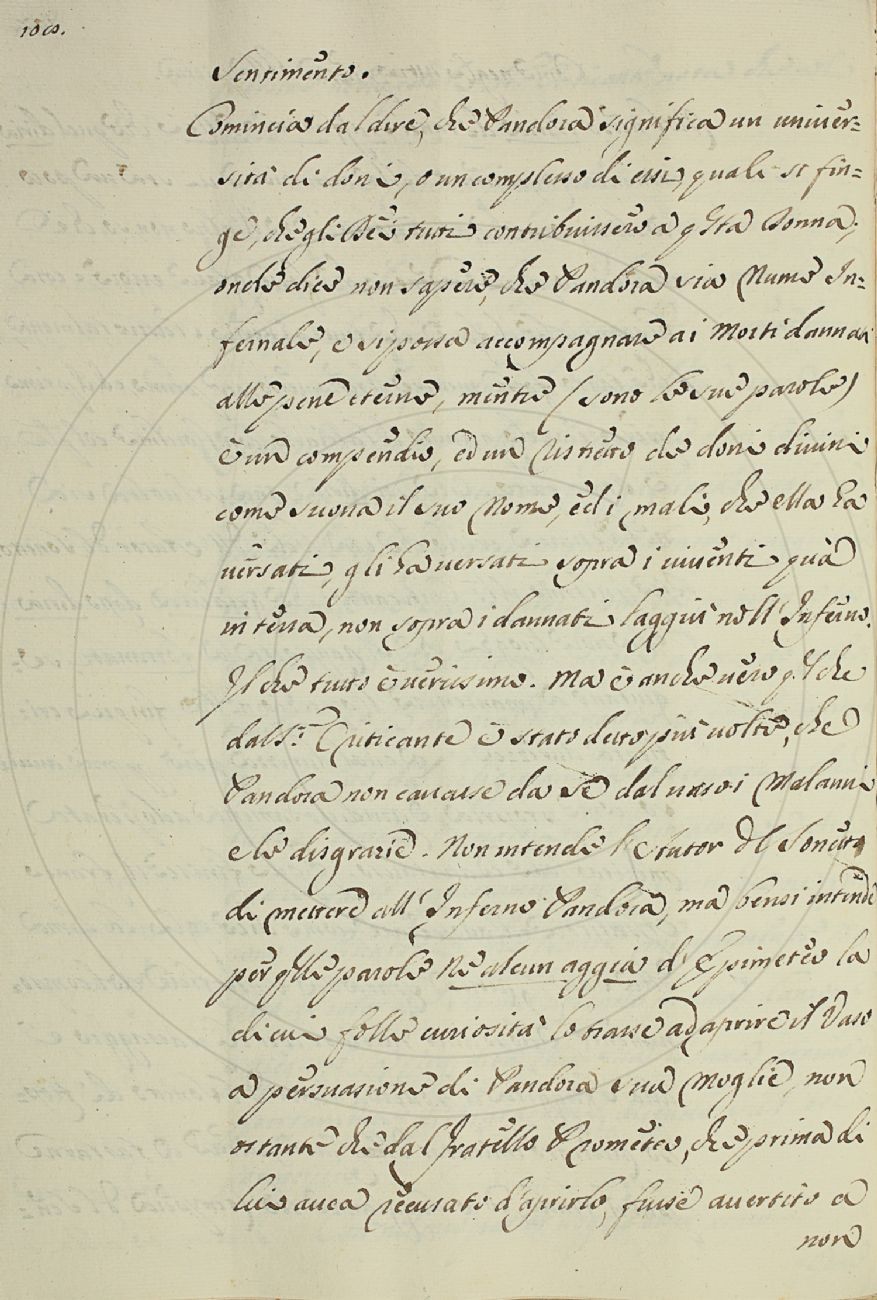 Sentimento.
Comincia dal dire, che Pandora significa un univer=
sità di doni, o un complesso di essi, quali si fin=
ge, che gli Dei tutti contribuissero a qsta Donna;
onde dice non sapere, che Pandora sia Nume In=
fernale, e si possa accompagnare ai Morti dannati
alle pene eterne, mentre (sono le sue parole)
è un compendio, ed un Ristretto de doni divini
come suona il suo Nome, ed i mali, che ella ha
versati, gli ha versati sopra i viventi quà
in terra, non sopra i dannati laggiù nell'Inferno.
Il che tutto è verissimo. Ma è anche vero ql che
dal Sr. Criticante è stato detto più volte, che
Pandora non cavasse da se dal vaso i Malanni
e le disgrazie. Non intende l'Autor dl Sonetto
di mettere all'Inferno Pandora, ma bensi intende
per qlle parole Ne alcun aggia d'Epimeteo la
di cui folle curiosità lo trasse ad aprire il Vaso
a persuasione di Pandora sua Moglie, non
ostante che dal Fratello Prometeo, che prima di
lui avea recusato d'aprirlo, fusse avertito a
non